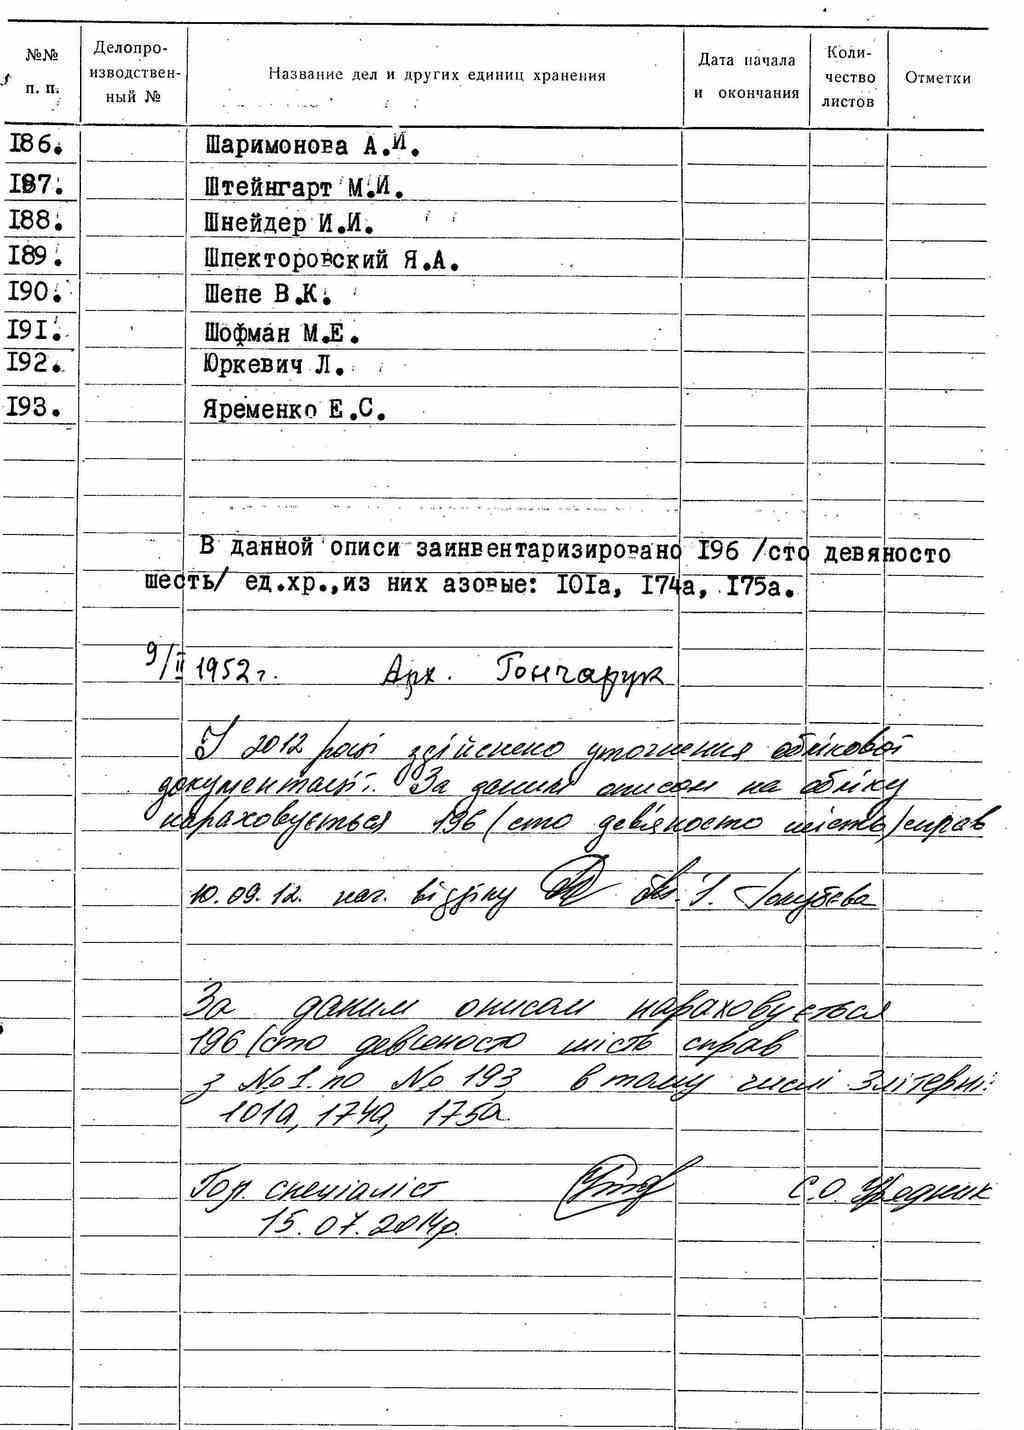 №№ п. п. Делопроизводственный № Название дел и других единиц хранения Дата начала и окончания Количество листов Отметки
I86. Шаримонова А.И.
I87. Штейнгарт М.И.
I88. Шнейдер И.И.
I89. Шпекторовский Я.А.
I90. Шепе В.К.
I91. Шофман М.Е.
I92. Юркевич Л.
I93. Яременко Е.С.
В данной описи заинвентаризировано I96 /сто девяносто
шесть/ ед.хр.,из них азовые: IOIа, I74а, I75а.
9/II 1952 г. Арх. Гончарук
У 2012 році здійснено уточнення облікової
документації. За даним описом на обліку
нараховується 196 (сто дев'яносто шість) справ
10.09.12. нач. відділу І. Голубєва
За даним описом нараховується
196 (сто дев'яносто шість справ
з № 1 по № 193, в тому числі 3 літерні:
101а, 174а, 175а.
Гол. спеціаліст С.О. Урединк
15.07.2014р.